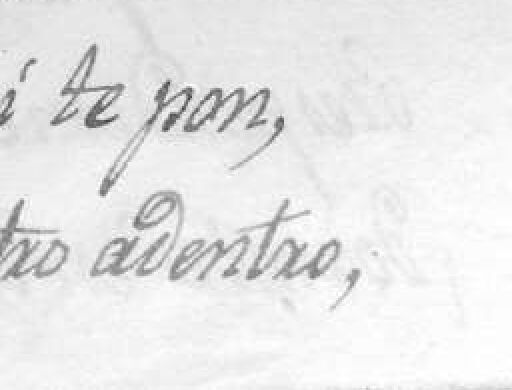 i te pon,
tro adentro,